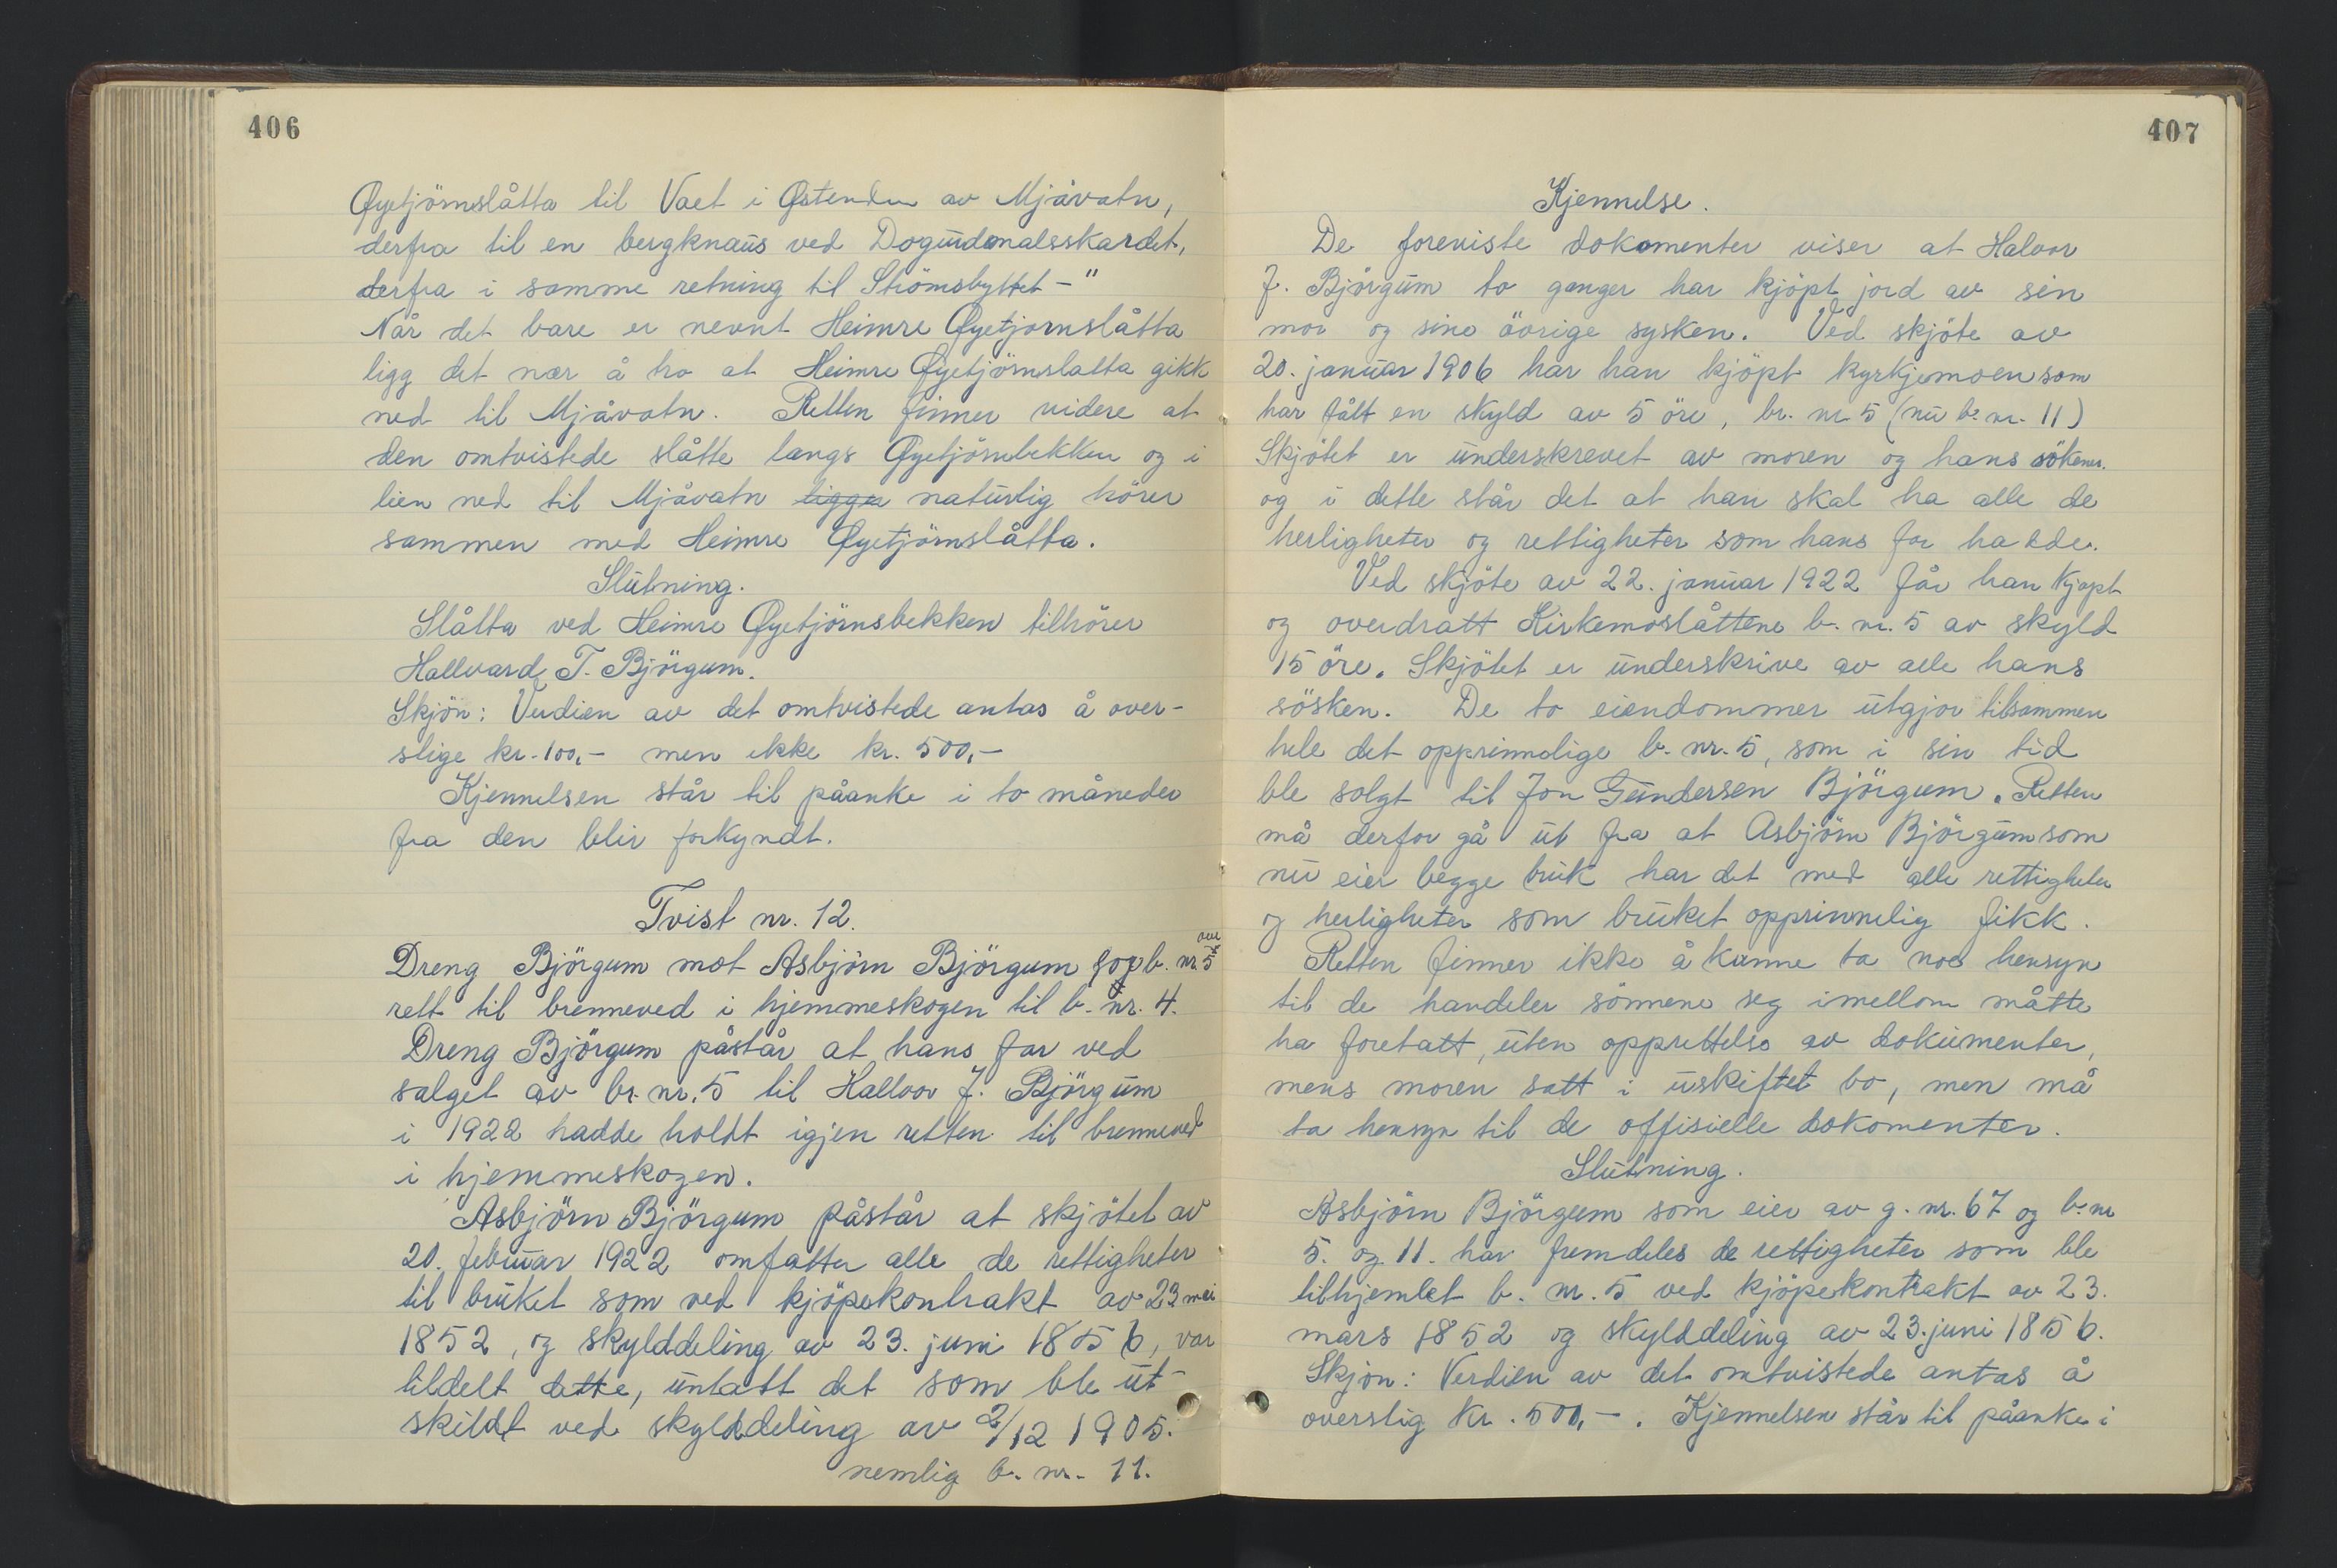 406
Øyetjörnslåtta til Vaet i Østenden av Mjåvatn,
derfra til en bergknaus ved Dogurdmalsskardet,
derfra i samme retning til Strömsbyttet -"
Når det bare er nevnt Heimre Øyetjornslåtta
ligg det nær å tro at Heimre Øyetjörnslatta gikk
ned til Mjåvatn. Retten finner videre at
den omtvistede slåtte langs Øyetjörnbekken og i
lien ned til Mjåvatn ligger naturlig hörer
sammen med Heimre Øyetjörnslåtta.
Slutning.
Slåtta ved Heimre Øyetjörnsbekken tilhörer
Hallvard T. Björgum.
Skjön: Verdien av det omtvistede antas å over-
slige kr. 100,- men ikke kr. 500,-
Kjennelsen står til påanke i to måneder
fra den blir forkyndt.
Tvist nr. 12.
Dreng Björgum mot Asbjörn Björgum b. nr. 5
rett til brenneved i hjemmeskogen til b. nr. 4.
Dreng Björgum påstår at hans far ved
salget av br. nr. 5 til Halloov J. Björgum
i 1922 hadde holdt igjen retten til brenneved
i hjemmeskogen.
Asbjörn Björgum påstår at skjötet av
20. februar 1922 omfatter alle de rettigheter
til bruket som ved kjöpekontrakt av 23 mai
1852, og skylddeling av 23. juni 1856, var
tildelt dette, untatt det som ble ut-
skildt ved skylddeling av 2/12 1905.
nemlig b. nr. 11.
407
Kjennelse.
De foreviste dokomenter viser at Halvor
J. Björgum to ganger har kjöpt jord av sin
mor og sine övrige sysken. Ved skjöte av
20. januar 1906 har han kjöpt kyrkjemoen som
har fått en skyld av 5 öre, br. nr. 5 (nu b. nr. 11)
Skjötet er underskrevet av moren og hans
og i dette står det at han skal ha alle de
herligheter og rettigheter som hans far hadde.
Ved skjöte av 22. januar 1922 får han kjöpt
og overdratt Kirkemoslåttene b. nr. 5 av skyld
15 öre. Skjötet er underskrive av alle hans
sösken. De to eiendommer utgjor tilsammen
hele det opprinnelige b. nr. 5, som i sin tid
ble solgt til Jon Gundersen Björgum. Retten
må derfor gå ut fra at Asbjörn Björgum som
nu eier begge bruk har det med alle rettigheter
og herligheter som bruket opprinnelig fikk.
Retten finner ikke å kunne ta noe hensyn
til de handeler sönnene seg imellom måtte
ha foretatt, uten opprettelse av dokumenter,
mens moren satt i uskiftet bo, men må
ta hensyn til de offisielle dokomenter.
Slutning.
Asbjörn Björgum som eier av g. nr. 67 og b. nr
5. og 11. har fremdeles de rettigheter som ble
tilhjemlet b. nr. 5 ved kjöpekontrakt av 23.
mars 1852 og skylddeling av 23. juni 1856.
Skjön: Verdien av det omtvistede antas å
overslig kr. 500,-. Kjennelsen står til påanke i